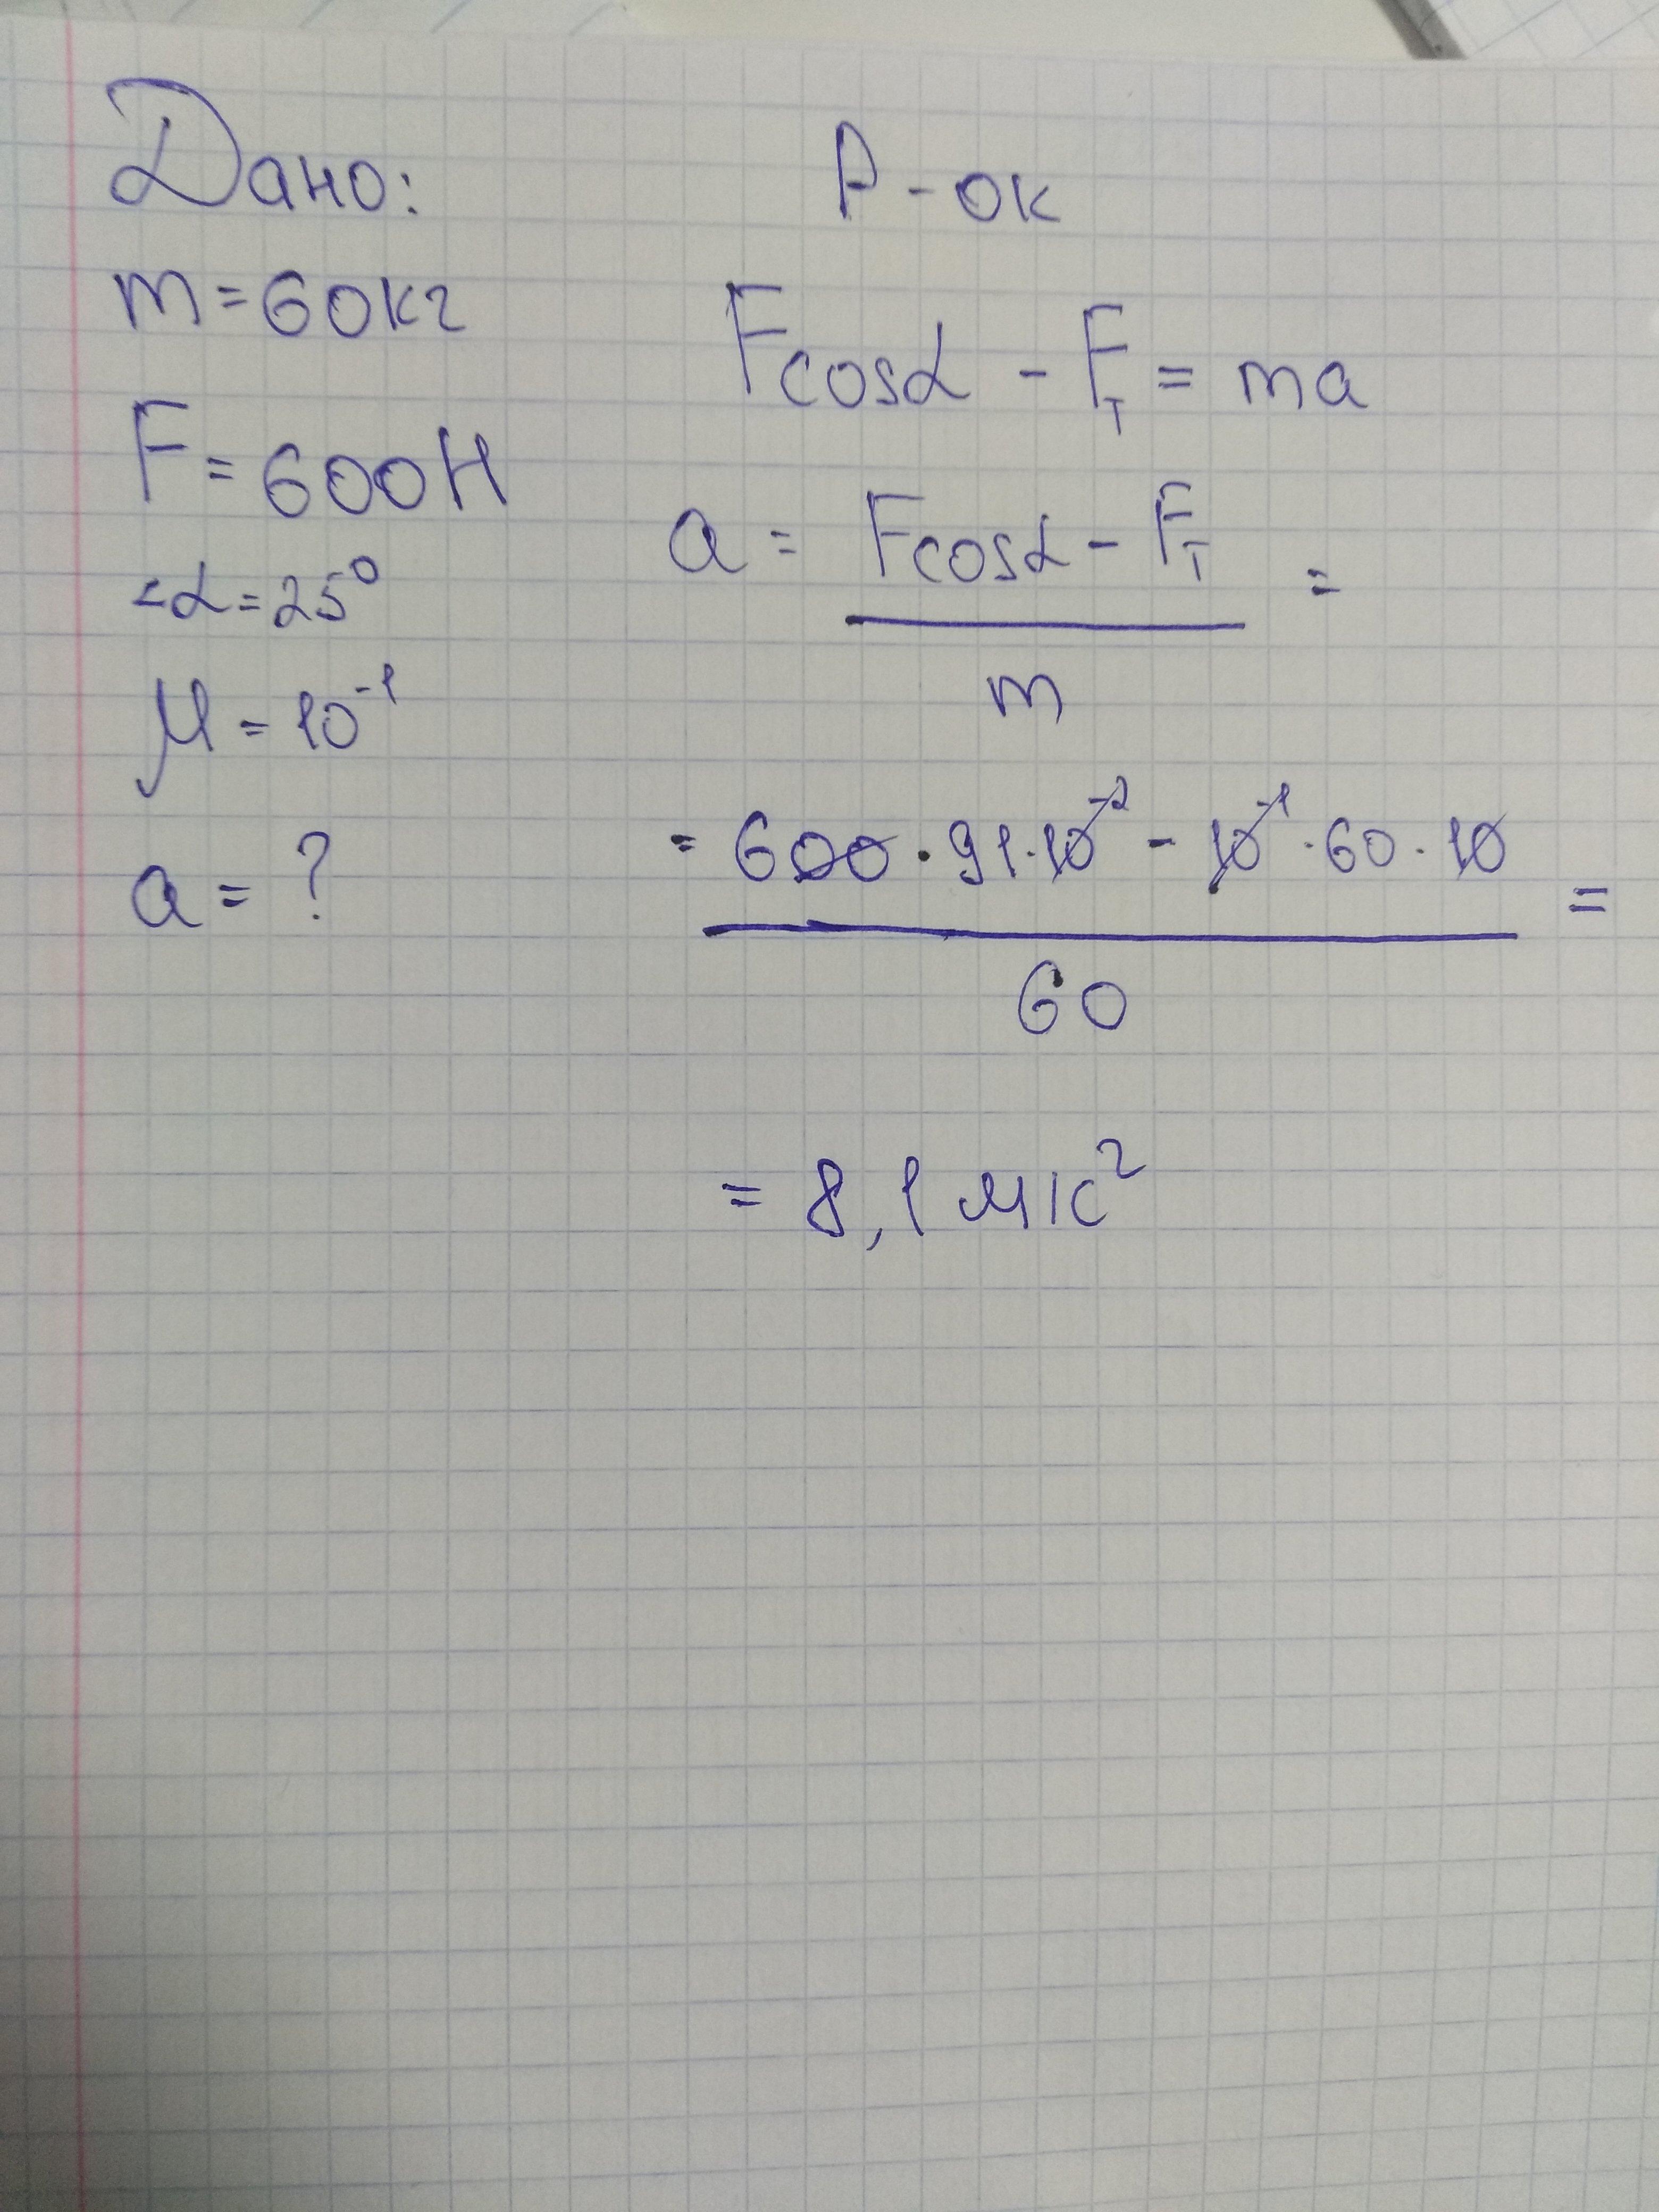 Дано:
m=60кг
F=600Н
<α=25⁰
μ=10⁻¹
a=?
Р-ок
Fcosα - Fт = ma
a = Fcosα - Fт =
m
= 600·91·10⁻² - 10⁻¹·60·10 =
60
= 8,1 м/с²